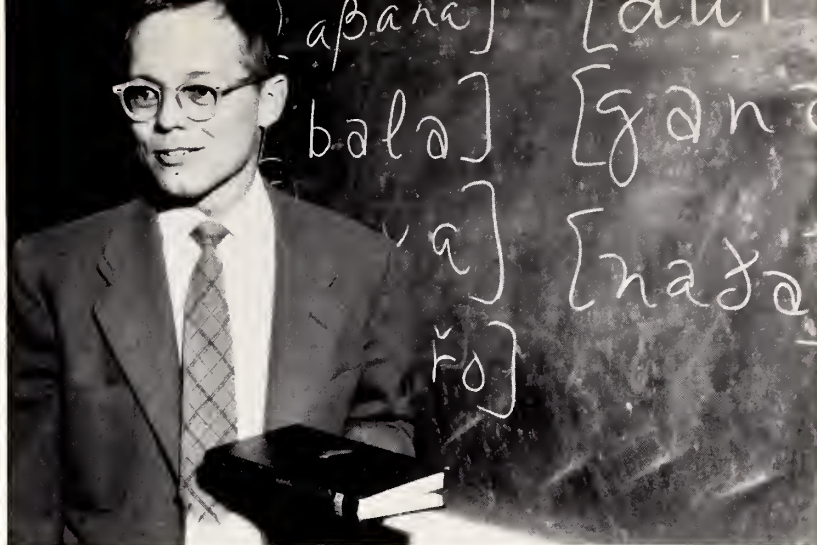 aβana] [au
bala] [gan
a] [na
řo]